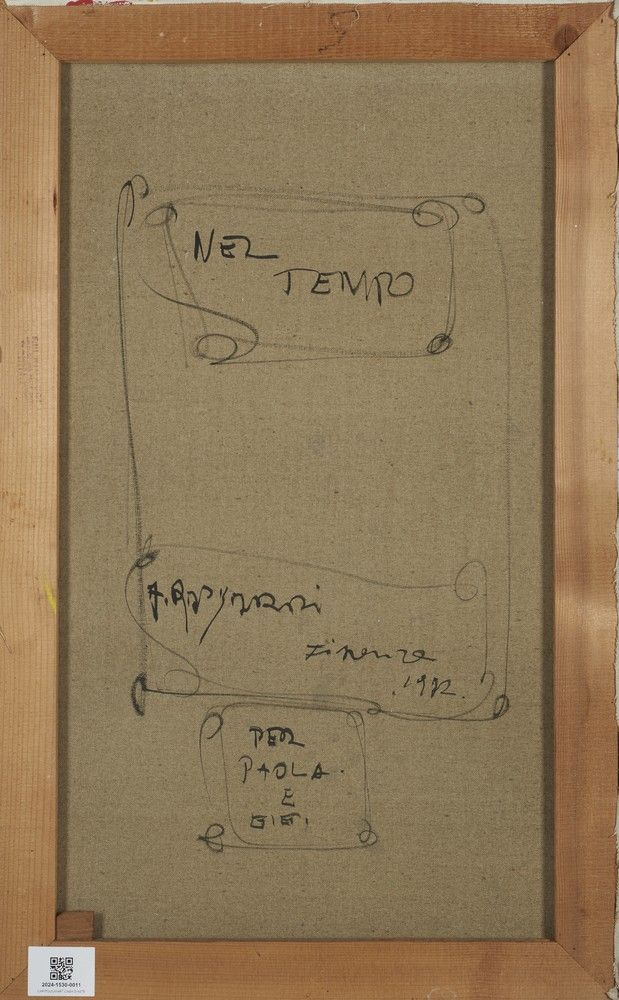 NEL
TEMPO
Firenze
PER
PAOLA.
E
GIGI.
2024-1530-0011